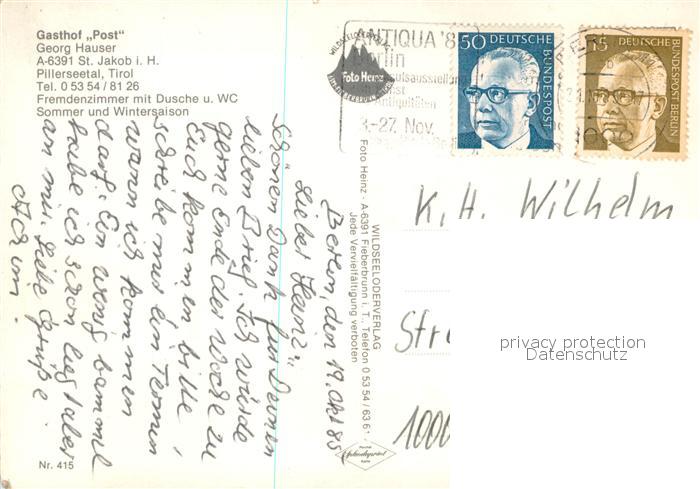 Gasthof „Post“
Georg Hauser
A-6391 St. Jakob i. H.
Pillerseetal, Tirol
Tel. 0 53 54 / 81 26
Fremdenzimmer mit Dusche u. WC
Sommer und Wintersaison
Berlin, den 19. Okt 85
Lieber Heinz,
Schönen Dank für Deinen
lieben Brief. Ich würde
gerne Ende der Woche zu
Euch kommen bitte
schreibe mir den Termin
wann ich kommen
darf. Ein wenig bammel
habe ich schon liegt aber
an mir. Liebe Grüße.
Achim.
Nr. 415
WILDSEELODERVERLAG
Foto Heinz
WILDSEELODERVERLAG
Foto Heinz - A-6391 Fieberbrunn i. T., Telefon 0 53 54 / 63 61
Jede Vervielfältigung verboten
ANTIQUA '8
Berlin
ufsausstellung
Antiquitäten
-27. Nov.
50 DEUTSCHE
BUNDESPOST
15 DEUTSCHE
BUNDESPOST BERLIN
K. H. Wilhelm
Str
1000
privacy protection
Datenschutz